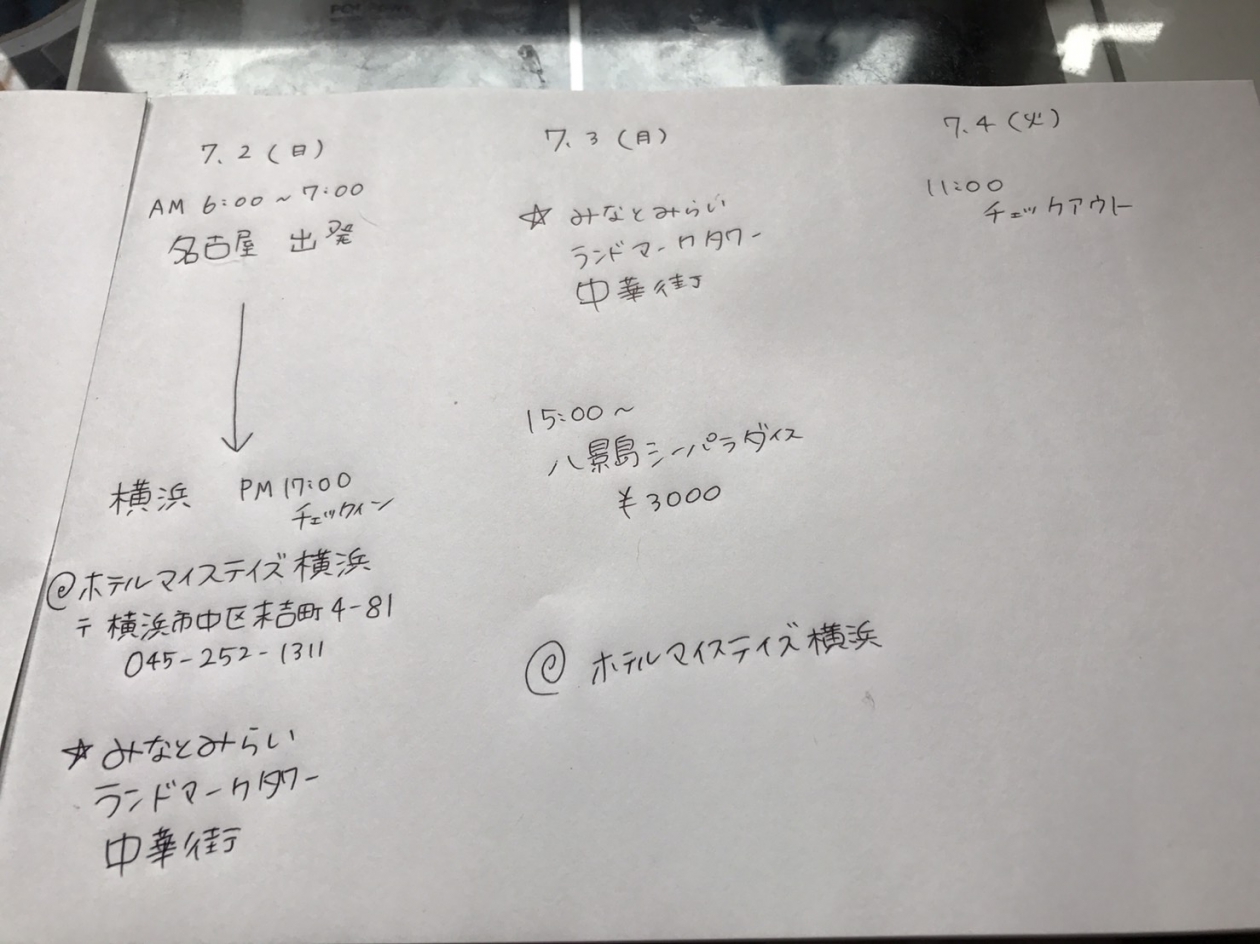 7.2(日)
AM 6:00~7:00
名古屋 出発
横浜 PM 17:00
チェックイン
@ホテルマイステイズ横浜
〒横浜市中区末吉町4-81
045-252-1311
☆みなとみらい
ランドマークタワー
中華街
7.3(月)
☆みなとみらい
ランドマークタワー
中華街
15:00~
八景島シーパラダイス
¥3000
@ ホテルマイステイズ横浜
7.4(火)
11:00
チェックアウト